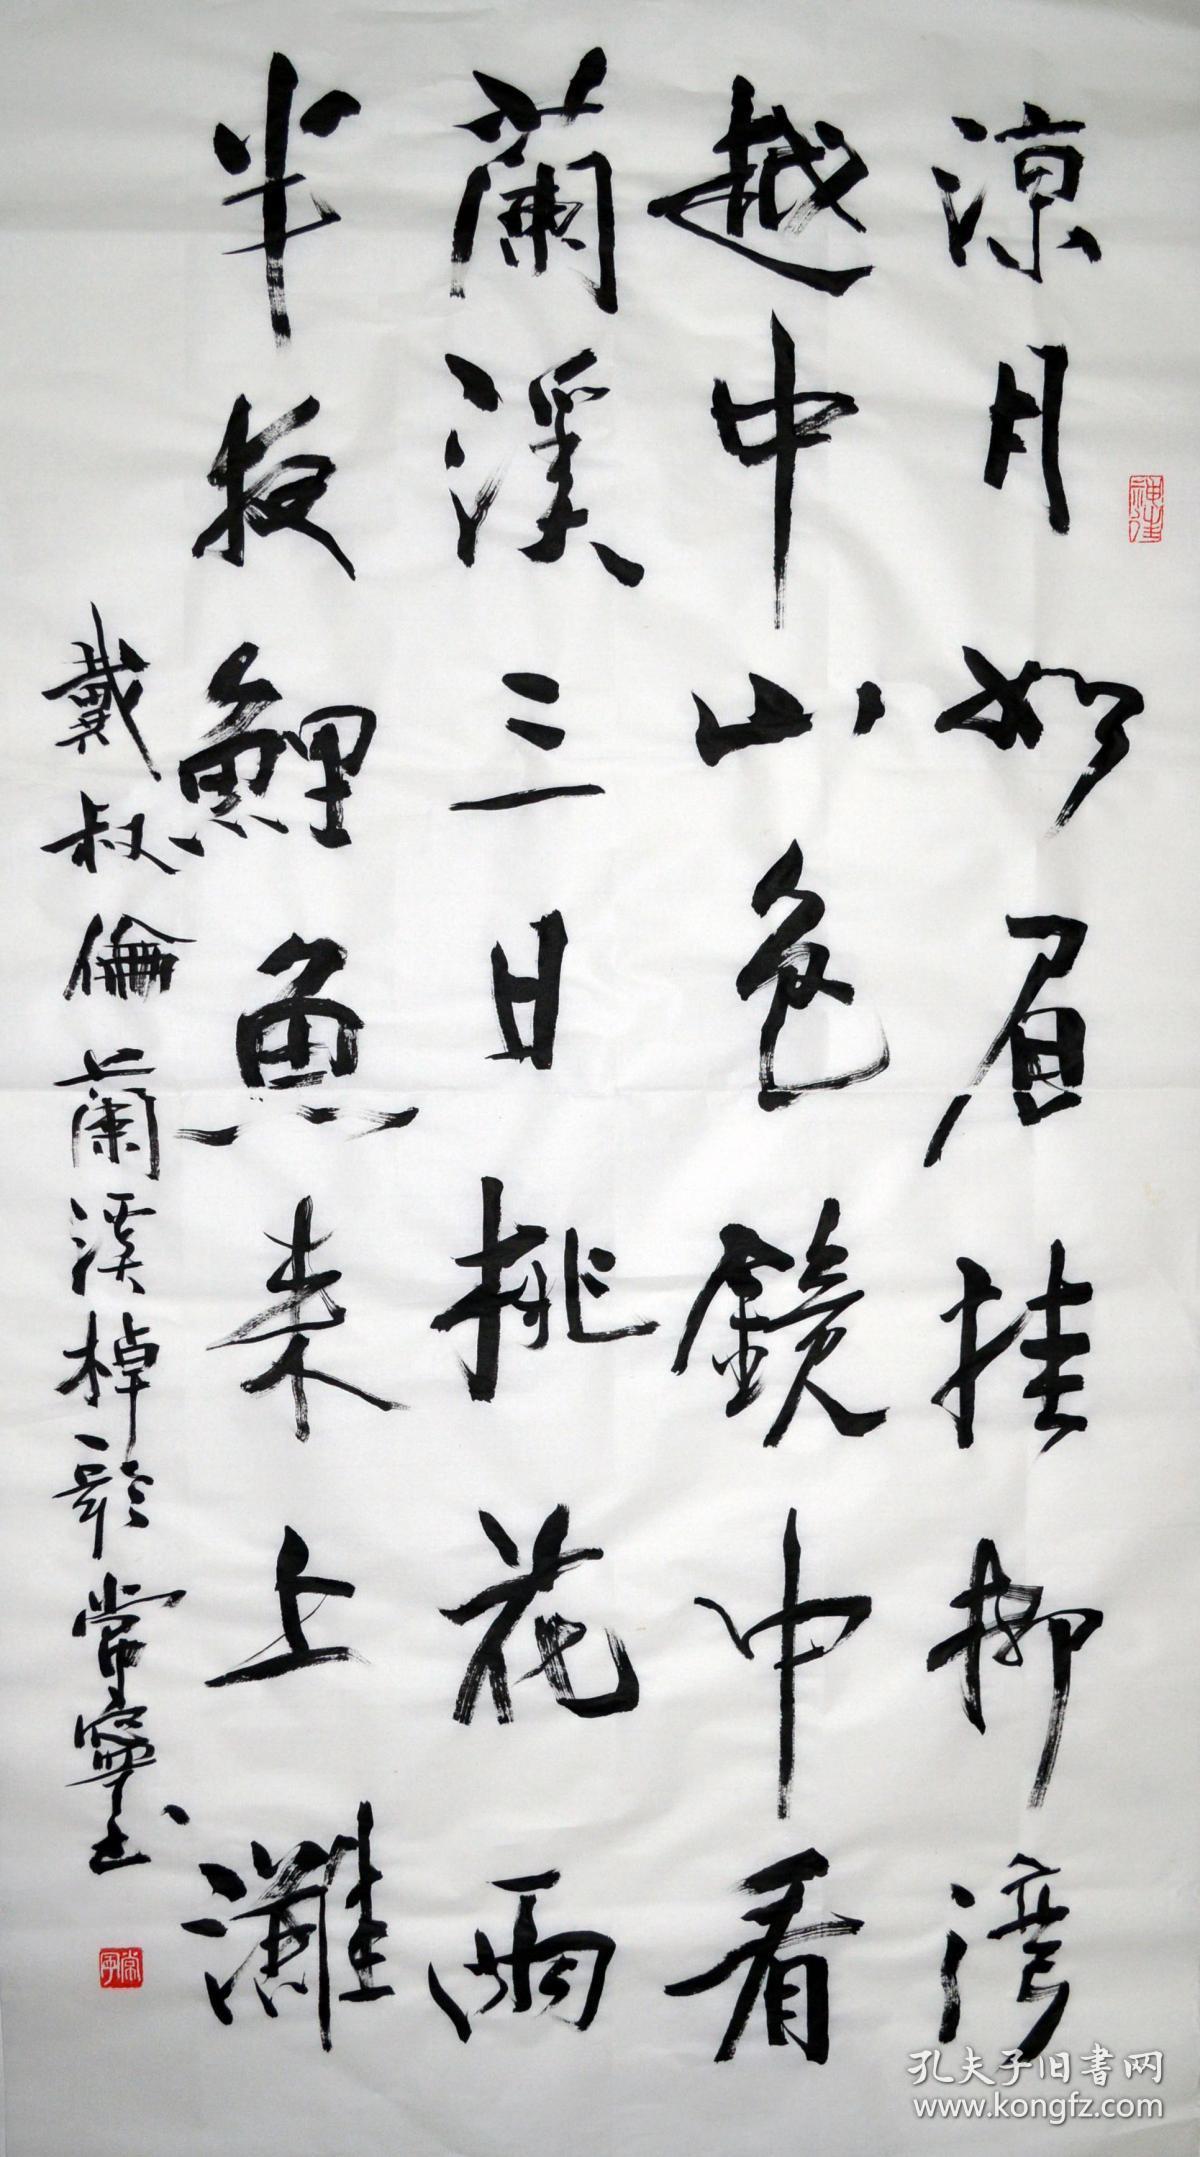 涼月如眉挂柳湾
越中山色鏡中看
蘭溪三日桃花雨
半夜鯉魚来上灘
戴叔倫蘭溪棹歌常寧书
孔夫子旧书网
www.kongfz.com